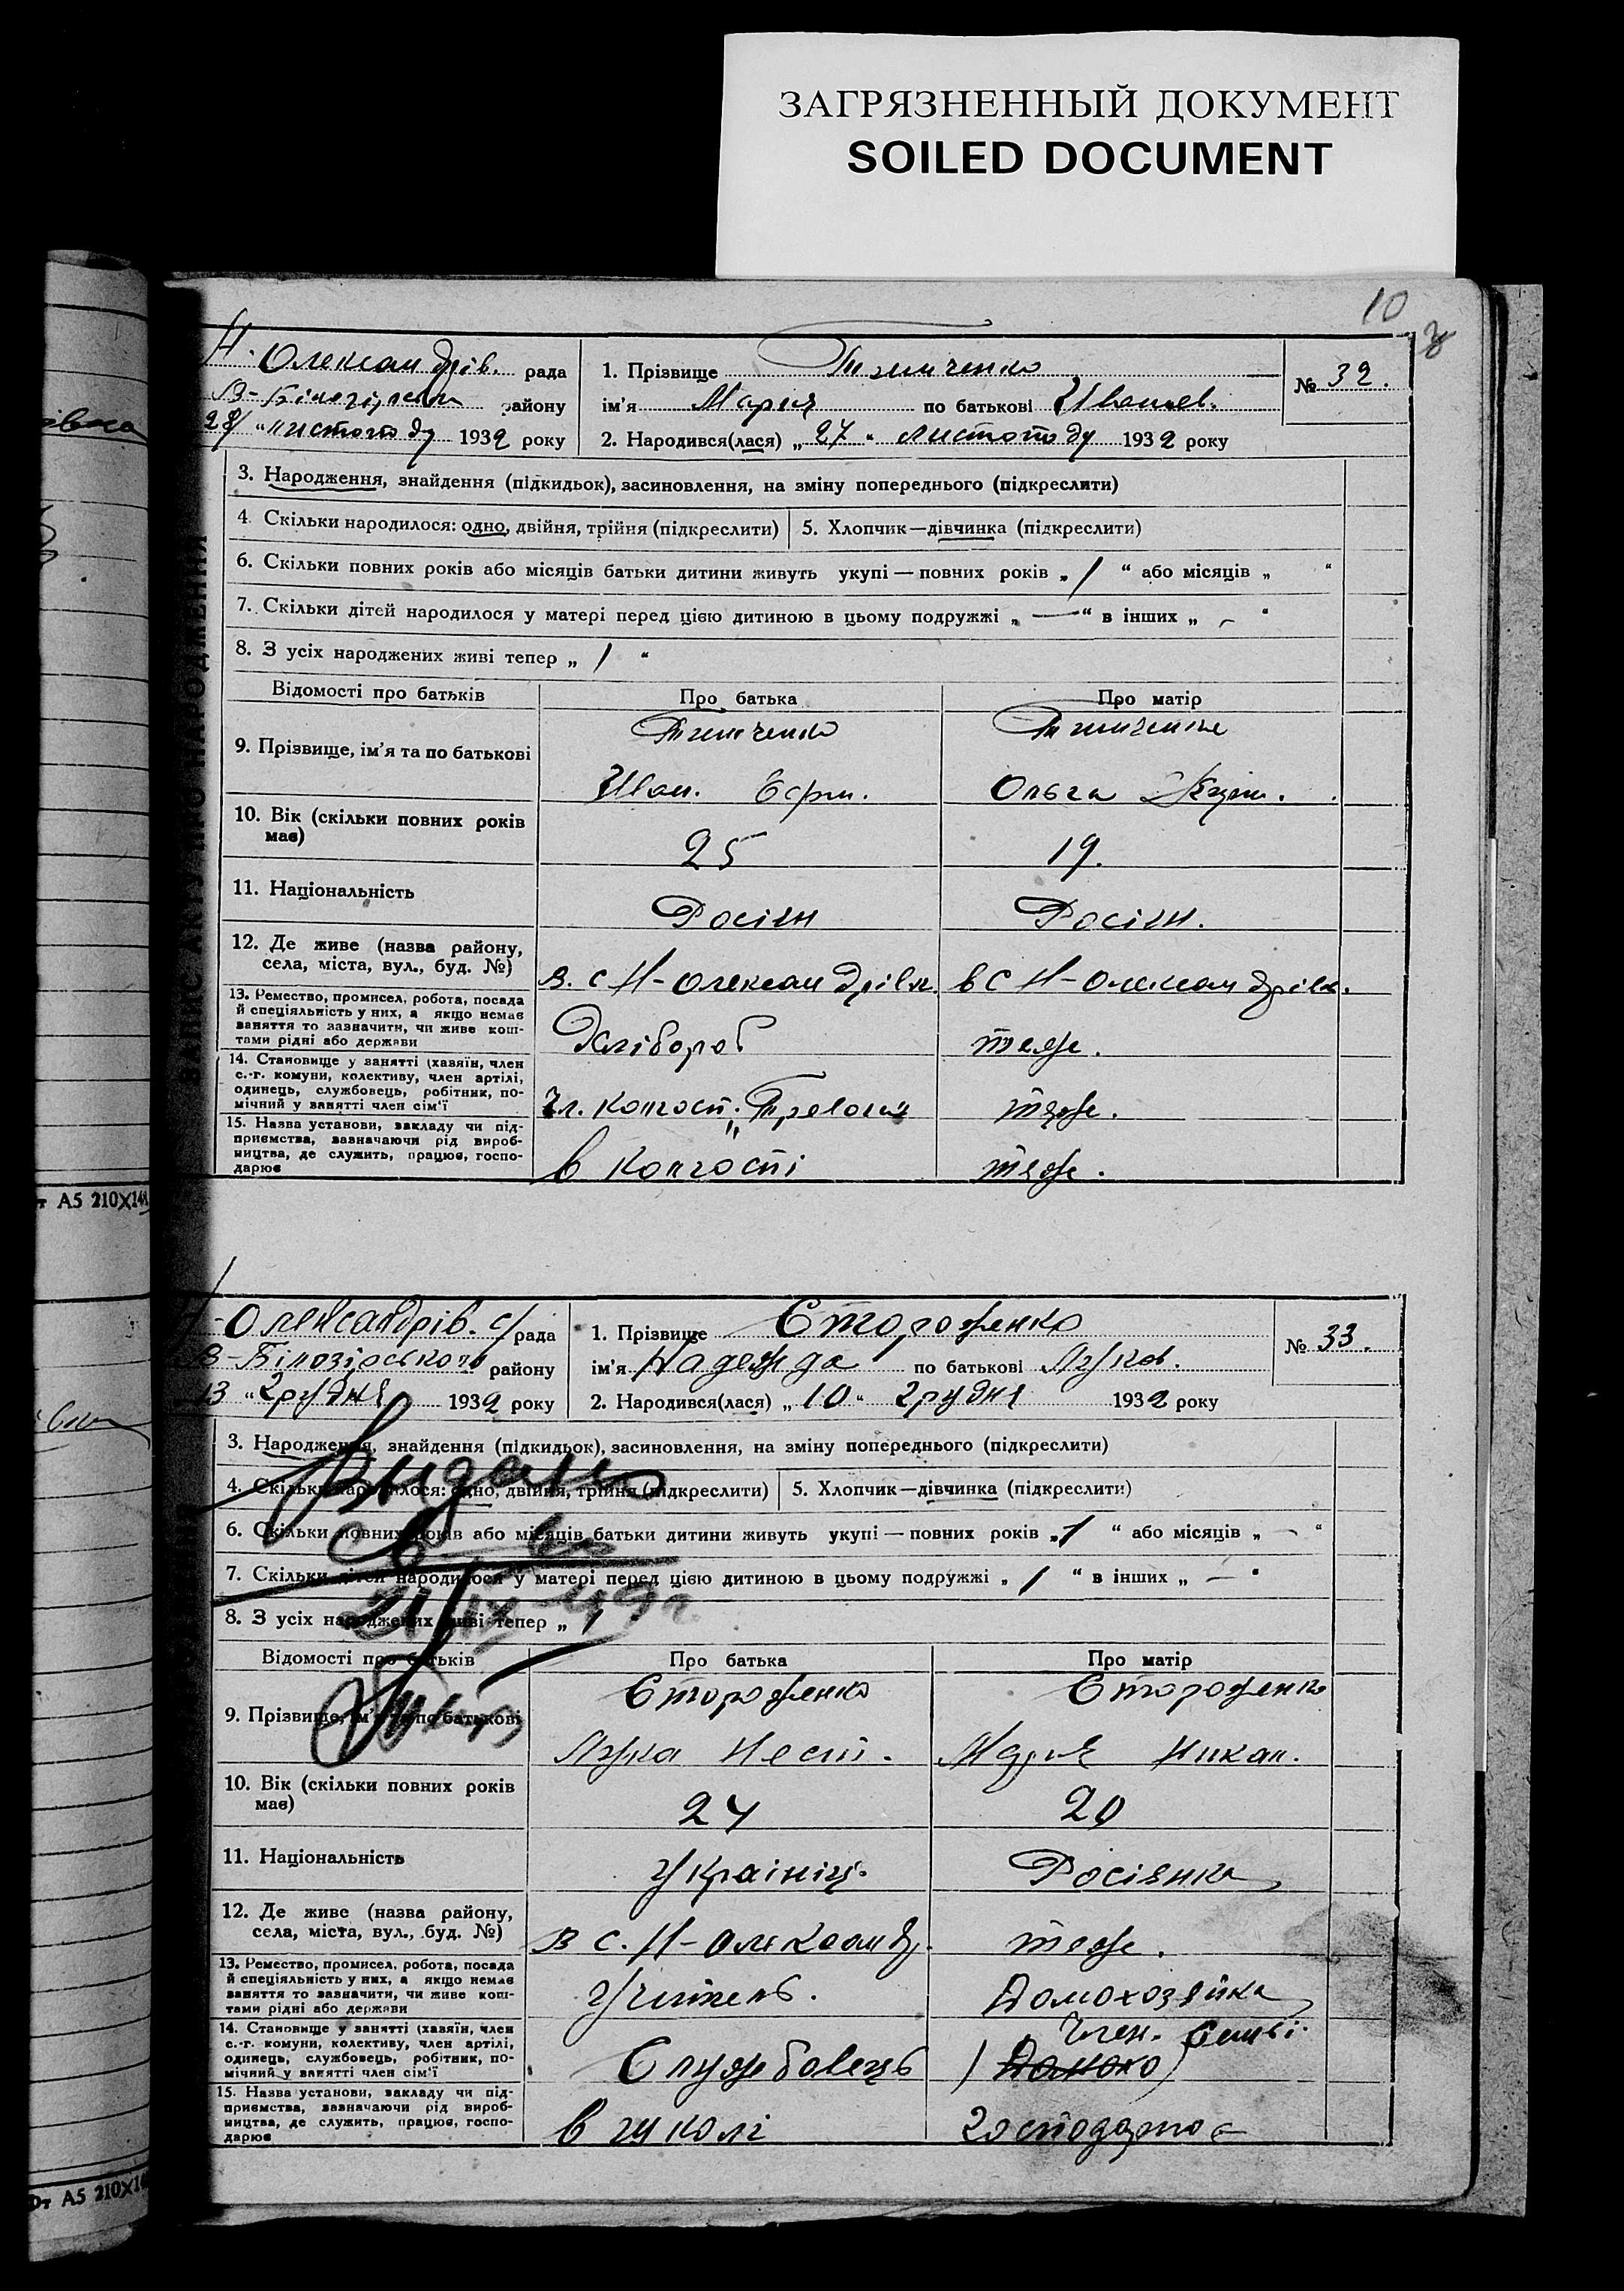 ЗАГРЯЗНЕННЫЙ ДОКУМЕНТ
SOILED DOCUMENT
10
Н. Олександрів. рада
В-Білозірськ району
28 "листопаду 1932 року
1. Прізвище Тимченко
ім'я Марія по батькові Иванов.
2. Народився(лася) „27" листопаду 1932 року
№ 32.
3. Народження, знайдення (підкидьок), засиновлення, на зміну попереднього (підкреслити)
4. Скільки народилося: одно, двійня, трійня (підкреслити)
5. Хлопчик—дівчинка (підкреслити)
6. Скільки повних років або місяців батьки дитини живуть укупі — повних років „ 1 “ або місяців „ “
7. Скільки дітей народилося у матері перед цією дитиною в цьому подружжі „ — “ в інших „ - “
8. З усіх народжених живі тепер „ 1 “
Відомості про батьків Про батька Про матір
9. Прізвище, ім'я та по батькові
Тимченко Тимченко
Иван. Ольга
10. Вік (скільки повних років має)
25 19.
11. Національність
Росіян Росіян.
12. Де живе (назва району, села, міста, вул., буд. №)
в. с Н-Олександрівк. в с Н-Олександрівк.
13. Ремество, промисел, робота, посада й спеціяльність у них, а якщо немає заняття то зазначити, чи живе коштами рідні або держави
Хлібороб теж.
14. Становище у занятті (хазяїн, член с.-г. комуни, колективу, член артілі, одинець, службовець, робітник, помічний у занятті член сім'ї
Чл. колгосп. теж.
15. Назва установи, закладу чи підприємства, зазначаючи рід виробництва, де служить, працює, господарює
в колгоспі теж.
А5 210Х148
Н-Олександрів. с/рада
В-Білозірського району
13 "грудня 1932 року
1. Прізвище Стороженко
ім'я Надежда по батькові Луков.
2. Народився(лася) „10" грудня 1932 року
№ 33.
3. Народження, знайдення (підкидьок), засиновлення, на зміну попереднього (підкреслити)
4. Скільки народилося: одно, двійня, трійня (підкреслити)
5. Хлопчик—дівчинка (підкреслити)
Видано
6. Скільки повних років або місяців батьки дитини живуть укупі — повних років „1 “ або місяців „ - “
7. Скільки дітей народилося у матері перед цією дитиною в цьому подружжі „ 1 “ в інших „ — “
21/IX-49г.
8. З усіх народжених живі тепер „ 1
Відомості про батьків Про батька Про матір
9. Прізвище, ім'я та по батькові
Стороженко Стороженко
Лука Нест. Марія Никан.
10. Вік (скільки повних років має)
24 20
11. Національність
Українц. Росіянка
12. Де живе (назва району, села, міста, вул., буд. №)
в с. Н-Олександр. теж.
13. Ремество, промисел, робота, посада й спеціяльність у них, а якщо немає заняття то зазначити, чи живе коштами рідні або держави
Учитель. Домохозяйка
14. Становище у занятті (хазяїн, член с.-г. комуни, колективу, член артілі, одинець, службовець, робітник, помічний у занятті член сім'ї
Член. семьі.
Службовець (Домохо)
15. Назва установи, закладу чи підприємства, зазначаючи рід виробництва, де служить, працює, господарює
в школі господарює
А5 210Х14